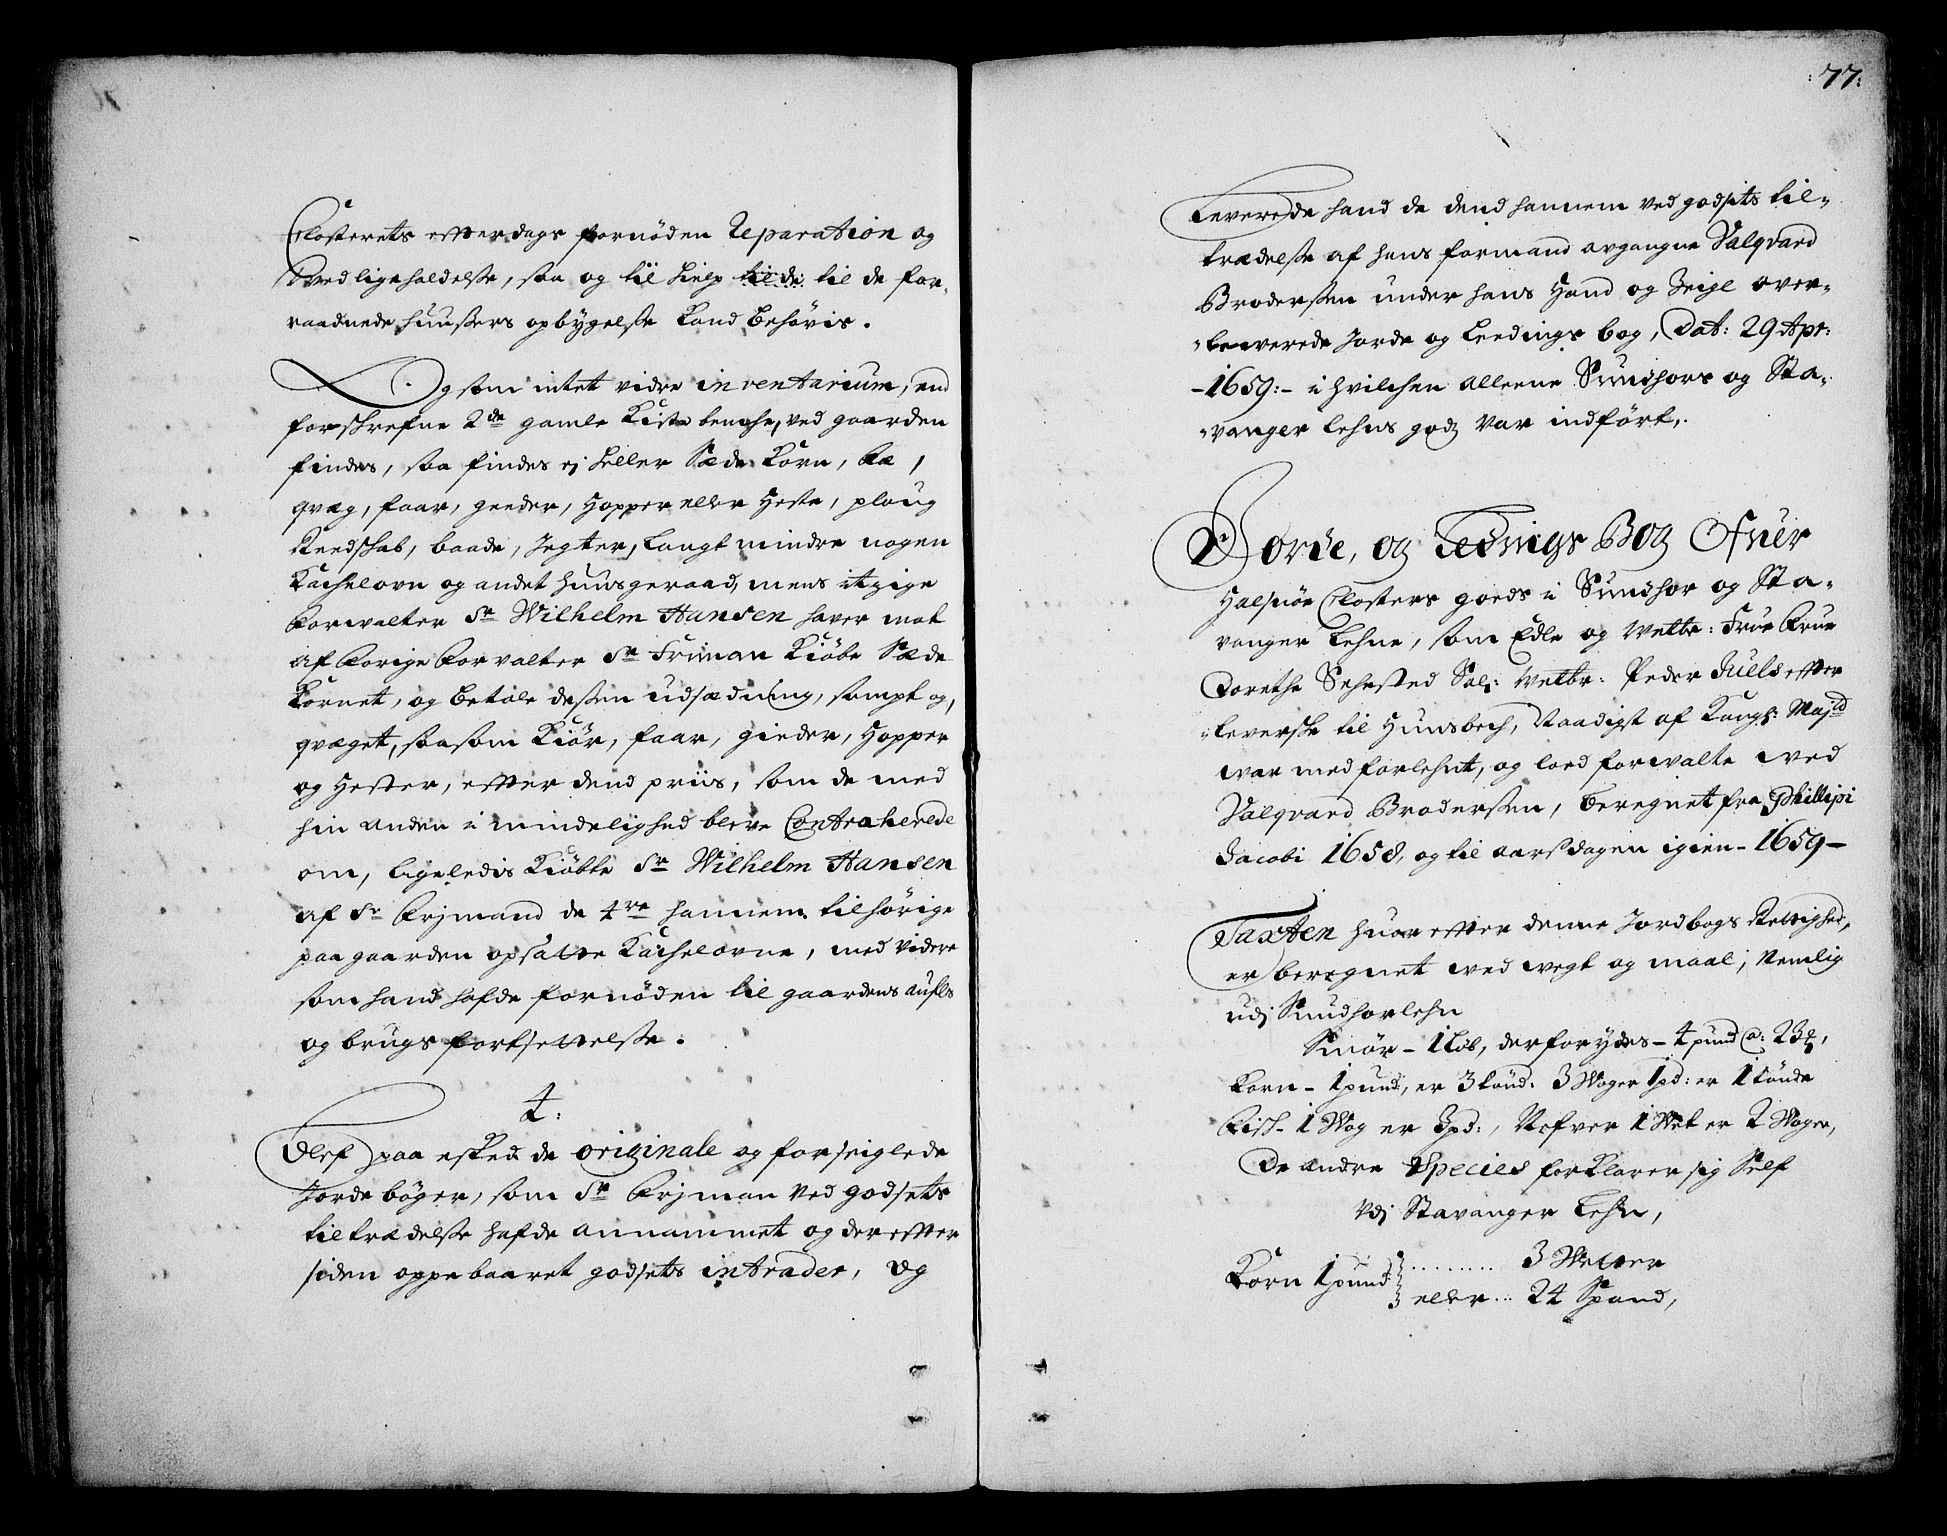 Closterets effterdags fornöden Reparation og
Vedligeholdelsse, saa og til hielp til de: til de for,
raadnede huussers opbÿgelsse kand behöris.
Og som intet vidre inventarium, end
forschrefne 2de gamle Kiste benche, ved gaarden
findes, saa findes ej heller Sæde Korn, Fæ,
qvæg, faar, geeder, Hopper eller Heste, ploug
Reedschab, baade, Jegter, langt mindre nogen
Kachelovn og andet huusgeraad, mens itzige
Forwalter Sr Wilhelm Hansen haver mot
af Forige Forvalter Sr Friman Kiöbe Sæde
Kornet, og betale dessen udsædning, sampt og,
qvæget, saasom Kiör, faar, gieder, Hopper
og Hester, effter dend priis, som de med
hin anden i mindelighed bleve Contraherede
om, ligeledis Kiöbte Sr Wilhelm Hansen
af Sr Frjmand de 4re hannem tilhörige
paa gaarden opsatte Kachelovne, med videre
som hand hafde fornöden til gaardens aufls
og brugs fortsettelsse.
4:
Blef paa esked de originale og forseiglede
Jorde böger, som Sr Frjman ved godsets
tiltrædelsse hafde annammet og der effter
siden oppebaaret godsets intrader, og
:77:
Leverede hand da dend hannem ved godsets til-
trædelsse af hans formand avgangne Valqvard
Broderssen under hans Hand og Zeigl over-
leverede Jorde og Leedings bog, Dat: 29 Apr:
-1659:- i hvilchen alleene Sundhors og Sta-
vanger Lehns godz var indfört,.
Jorde, og Lednigs Bog Ofuer
Halsnöe Closters goeds i Sundhor og Sta-
vanger Lehne, som Edle og Velbr: Frue Frue
Dorethe Sehested Sal: Velbr: Peder Juels effter
leversche til Hunsbech, Naadigst af Kongl: Majtd
war med forlehnt, og loed forwalte wed
Valqvard Broderssen, beregnet fra Phillipi
Jacobi 1658, og til aarsdagen igien - 1659 -
Taxten huor effter denne Jordbogs Rettighed,
er beregnet wed wegt og maal; Nemlig
udj Sundhorlehn
Smör - 1 Löb, derfor ÿdes - 4 pund a: 23 ,
Korn - 1 pund, er 3 tönd: 3 Woger 1 pd: er 1 tönde
Fisk - 1 Wog er 3 pd:, Nefver 1 Wet er 2 Woger,
De andre Species forklarer sig Self
Vdj Stavanger Lehn,
Korn 1 pund ......... 3 Wetter
eller ... 24 Spand,